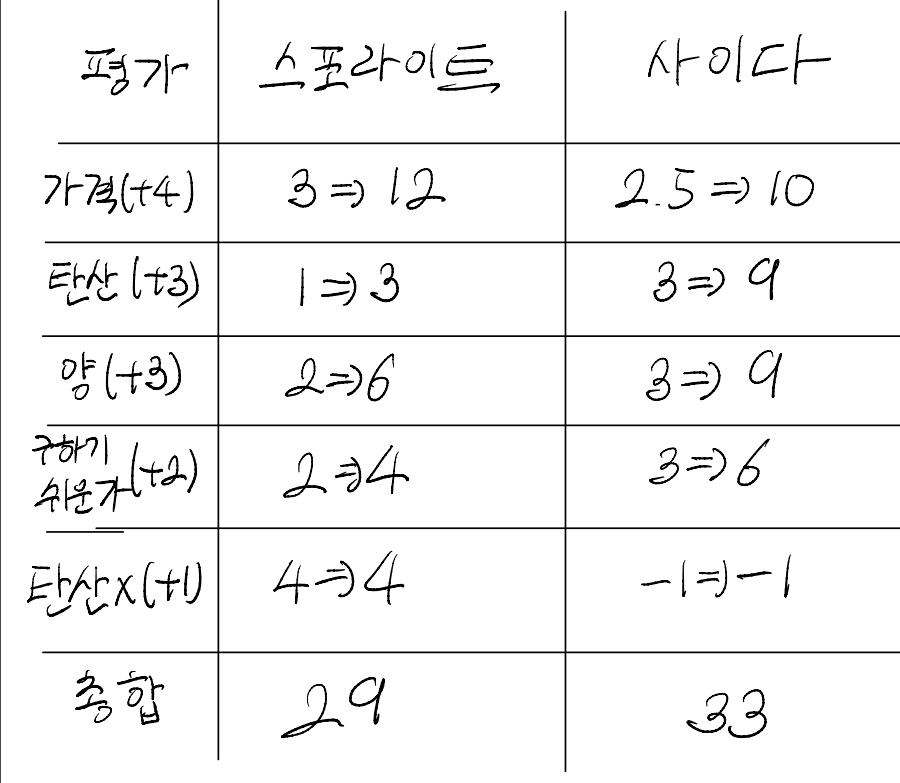 평가 스포라이트 사이다
가격(+4) 3⇒12 2.5⇒10
탄산(+3) 1⇒3 3⇒9
양(+3) 2⇒6 3⇒9
구하기
쉬운가(+2) 2⇒4 3⇒6
탄산x(+1) 4⇒4 -1⇒-1
총합 29 33